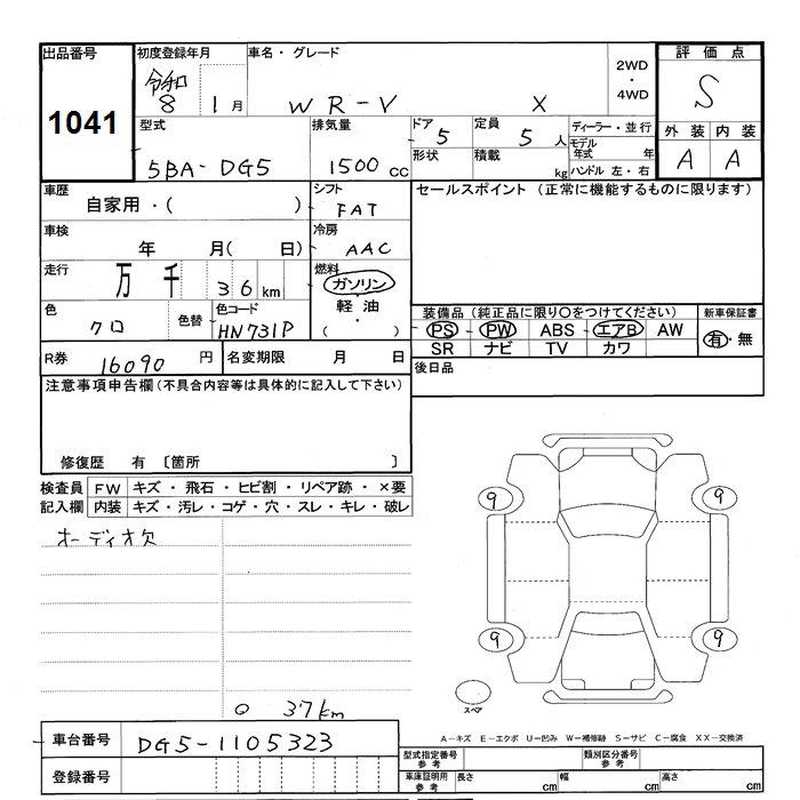 出品番号
1041
初度登録年月
令和
8 1月
車名・グレード
WR-V X
2WD
・
4WD
評価点
S
外装 内装
A A
型式
5BA-DG5
排気量
1500cc
ドア
5
定員
5人
ディーラー・並行
モデル
年式 年
形状
積載
kg
ハンドル 左・右
車歴
自家用・( )
シフト
FAT
セールスポイント (正常に機能するものに限ります)
車検
年 月( 日)
冷房
AAC
走行
万 千 36km
燃料
ガソリン
軽油
・
( )
色
クロ
色替
色コード
HN731P
装備品 (純正品に限り○をつけてください)
PS・PW ABS・エアB AW
SR ナビ TV カワ
新車保証書
有・無
R券
16090 円
名変期限 月 日
後日品
注意事項申告欄(不具合内容等は具体的に記入して下さい)
修復歴 有 〔箇所 〕
検査員
記入欄
FW キズ・飛石・ヒビ割・リペア跡・×要
内装 キズ・汚レ・コゲ・穴・スレ・キレ・破レ
オーディオ欠
9 9
9 9
スペア
37km
A-キズ E-エクボ U-凹み W-補修跡 S-サビ C-腐食 XX-交換済
車台番号
DG5-1105323
登録番号
型式指定番号
参考
類別区分番号
参考
車庫証明用
参考
長さ cm
幅 cm
高さ cm